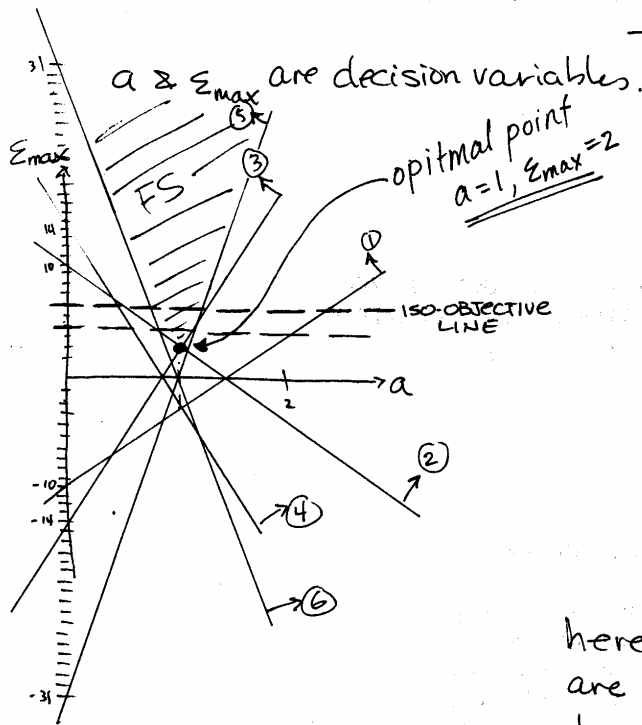 31
a & Σmax are decision variables.
⑤
Σmax
③
FS
opitmal point
a=1, Σmax=2
14
10
①
ISO-OBJECTIVE
LINE
a
1
2
②
-10
-14
④
⑥
-31
here
are